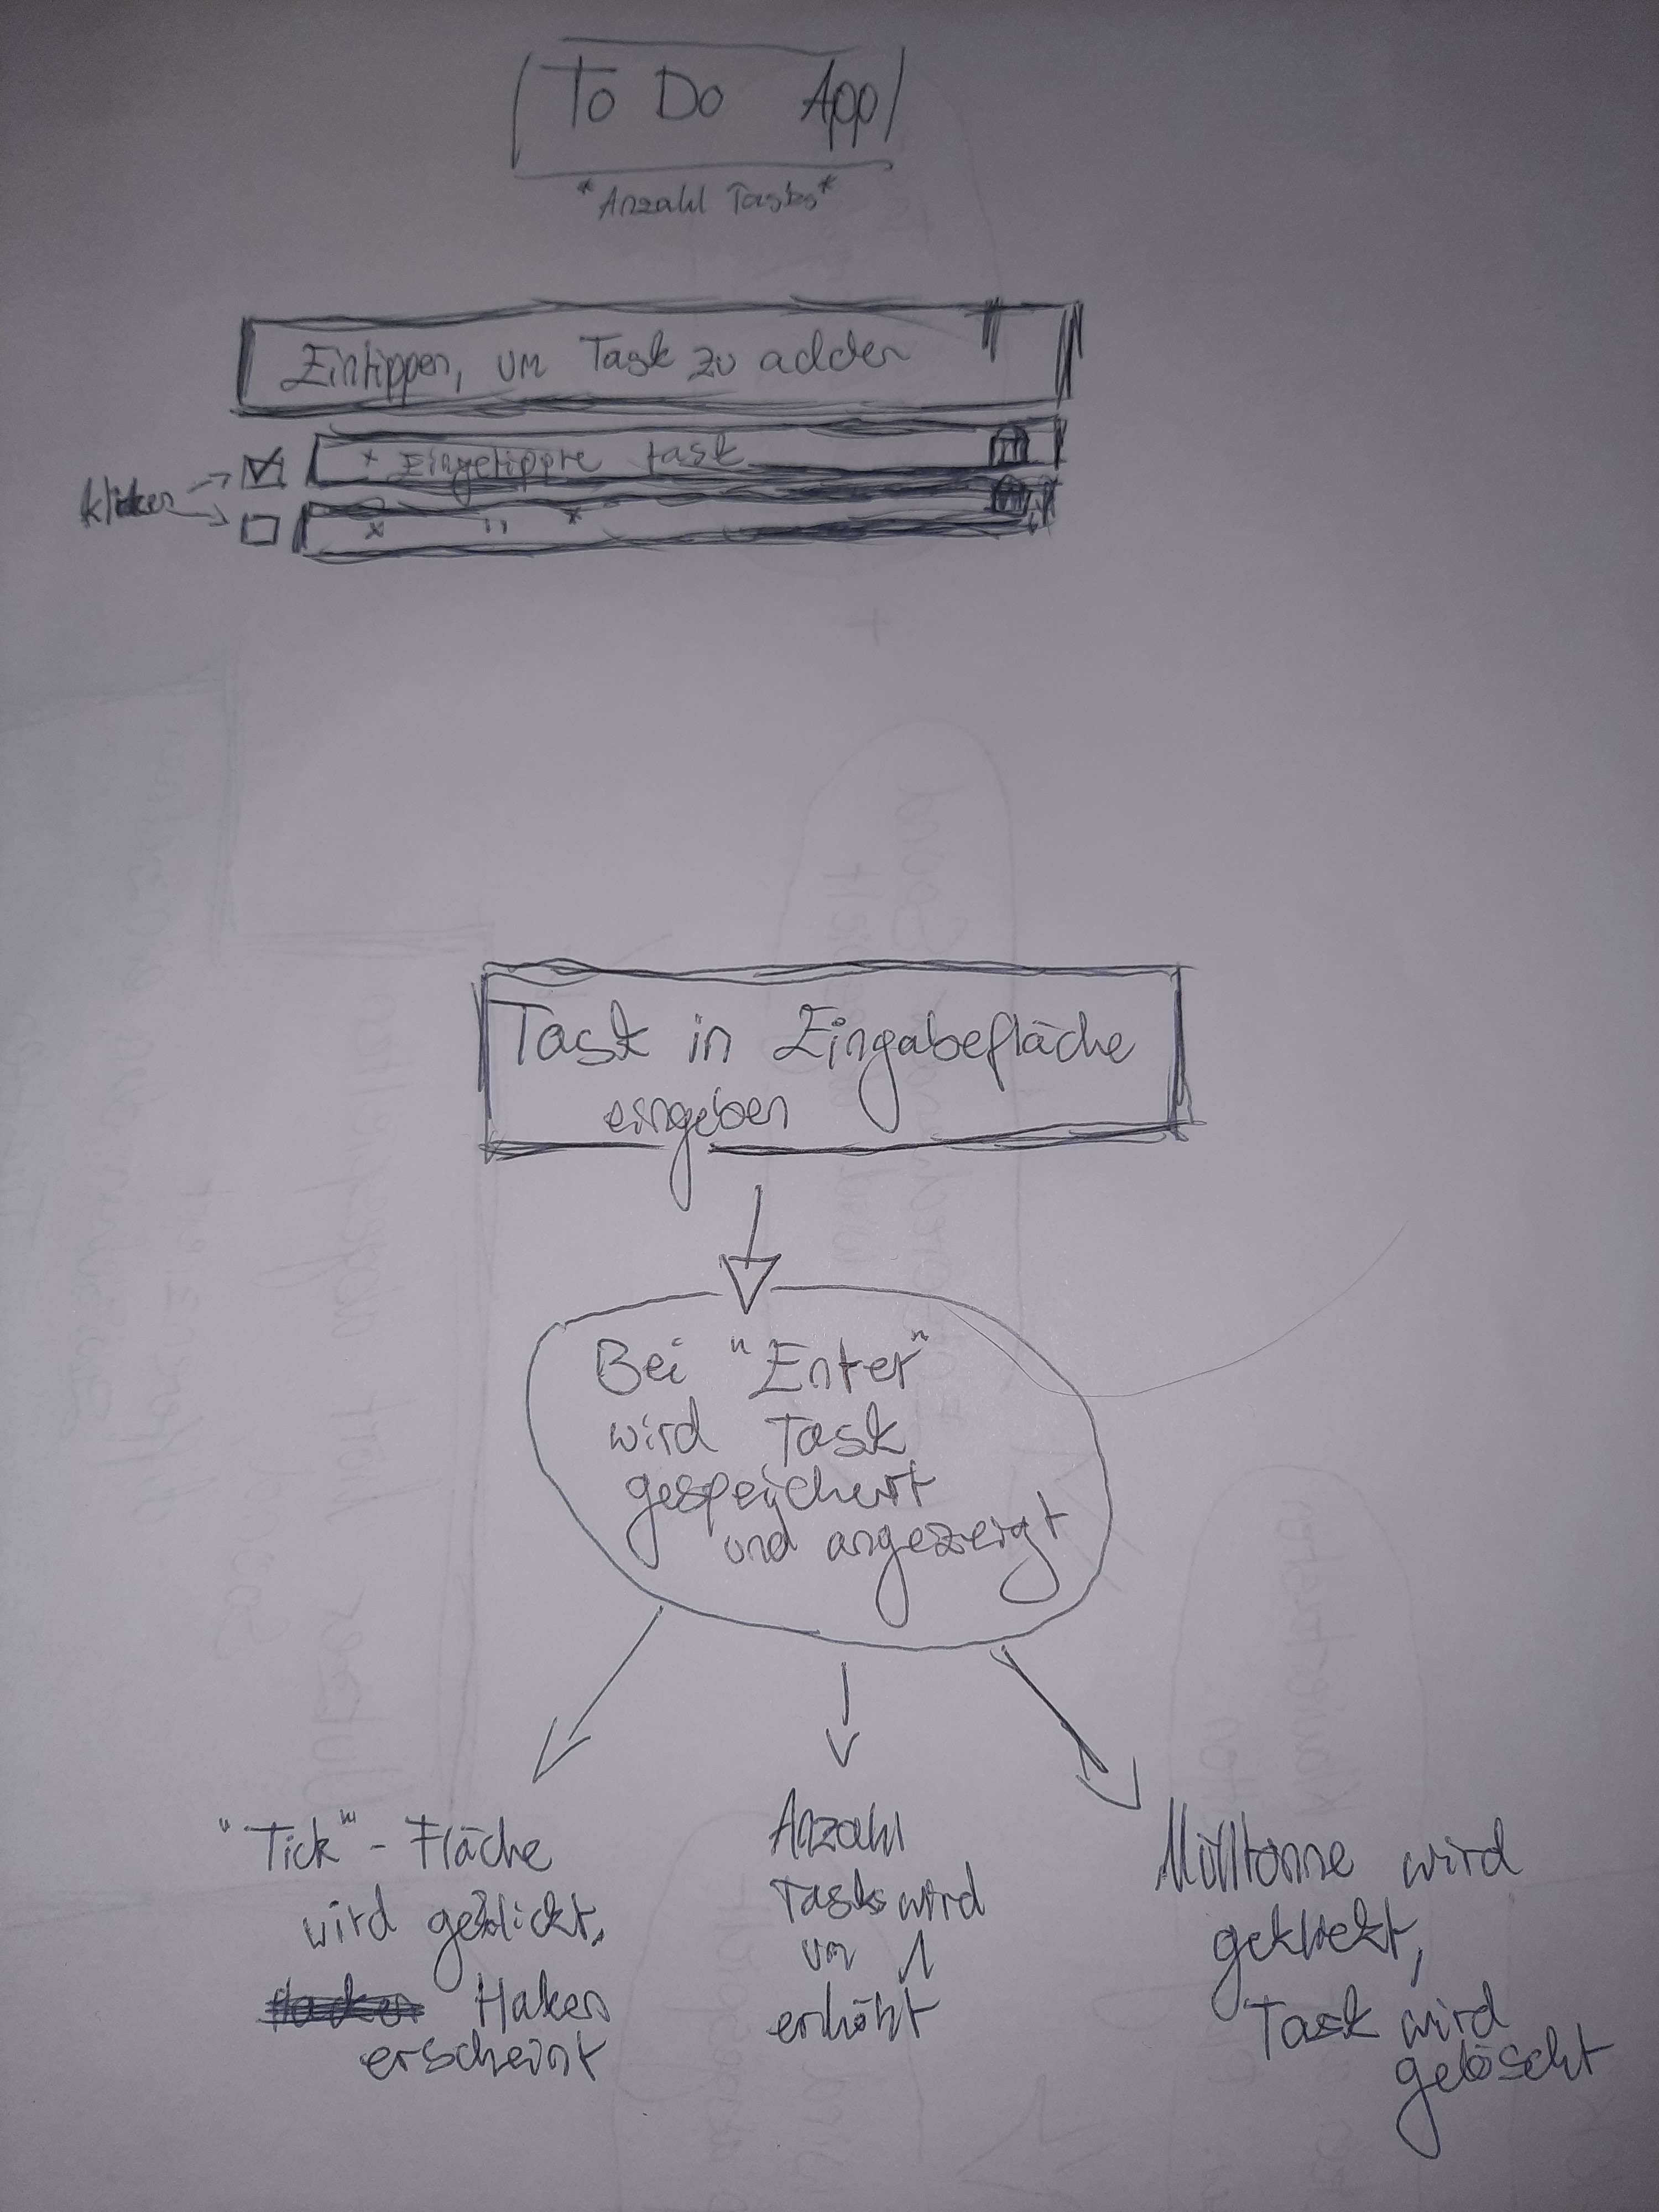 To Do App
*Anzahl Tasks*
Eintippen, um Task zu adden
* Eingetippte task
klicken
* " *
Task in Eingabefläche
eingeben
Bei "Enter"
wird Task
gespeichert
und angezeigt
"Tick" - Fläche
wird geklickt,
Haken
erscheint
Anzahl
Tasks wird
um 1
erhöht
Mülltonne wird
geklickt,
Task wird
gelöscht